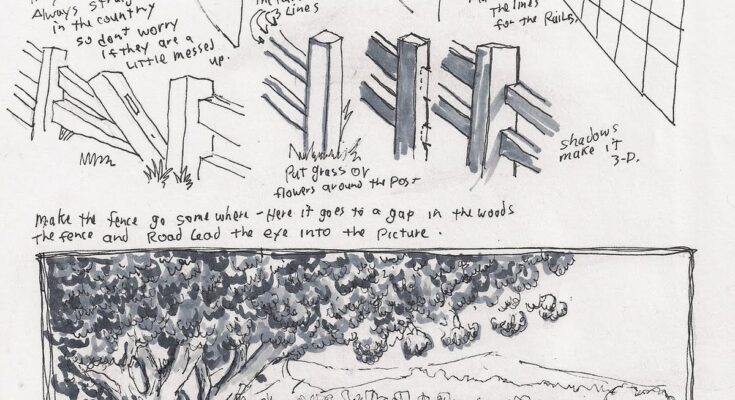 Always strai
in the country
so don't worry
if they are a
little messed
up.
3 Lines
The lines
for the Rails
shadows
make it
3-D.
Put grass or
flowers around the Post
Make the fence go somewhere - Here it goes to a gap in the woods
The fence and Road Lead the eye into the Picture.